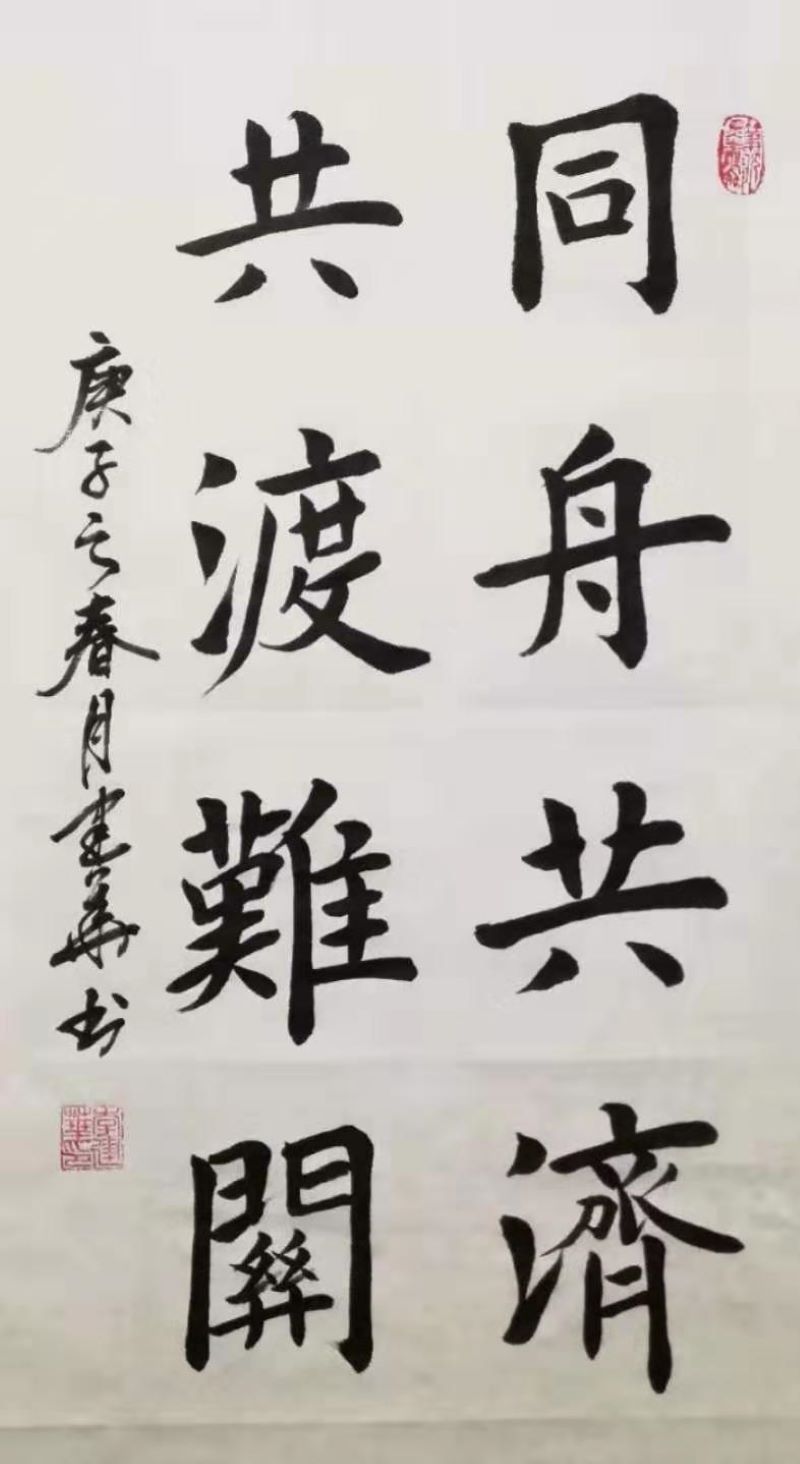 同舟共济
共渡難關
庚子之春月建華书